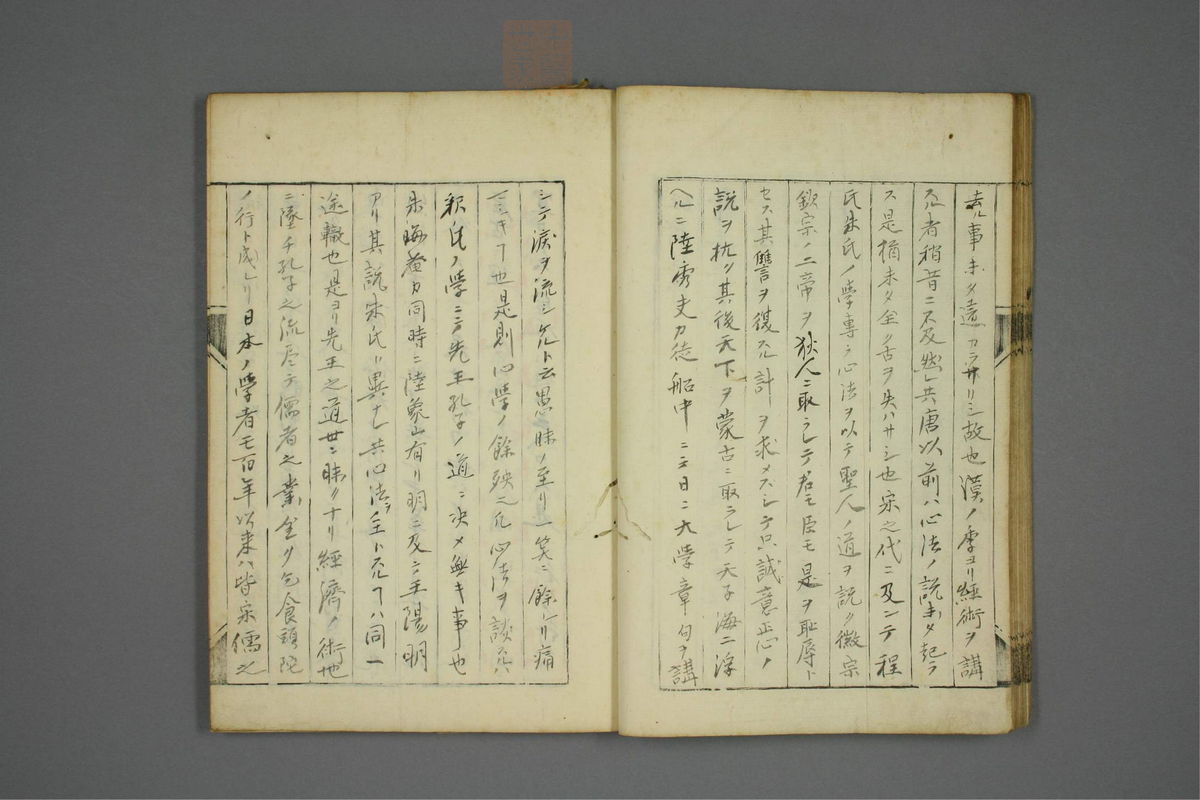 去ル事未タ遠カラサリシ故也漢ノ季ヨリ經術ヲ講
スル者稍昔ニ不及然レ共唐以前ハ心法ノ説未タ起ラ
ス是猶未タ全ク古ヲ失ハサシ也宋之代ニ及ンテ程
氏朱氏ノ學專ラ心法ヲ以テ聖人ノ道ヲ説ク徽宗
欽宗ノ二帝ヲ狄人ニ取ラレテ君モ臣モ是ヲ恥辱ト
セス其讐ヲ復スル計ヲ求メスシテ只誠意正心ノ
説ヲ抗ク其後天下ヲ蒙古ニ取ラレテ天子海ニ浮
ヘルニ陸秀夫カ徒船中ニテ日ニ大學章句ヲ講
シテ涙ヲ流シタルト云愚昧ノ至リ一笑ニ餘レリ痛
ムヘキヿ也是則心學ノ餘殃也凡心法ヲ談スルハ
釈氏ノ學ニテ先王孔子ノ道ニ决メ無キ事也
朱晦菴カ同時ニ陸象山有リ明ニ及テ王陽明
アリ其説朱氏ト異ナレ共心法ヲ主トスルヿハ同一
途轍也是ヨリ先王之道世ニ昧クナリ經濟ノ術地
ニ墜チ孔子之流尽テ儒者之業全ク乞食頭陀
ノ行ト成レリ日本ノ學者モ百年以来ハ皆宋儒之